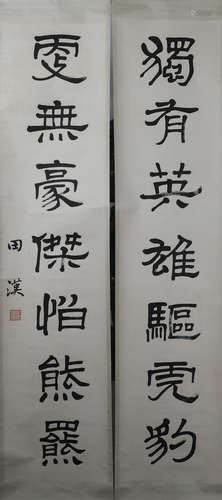 獨有英雄驅虎豹
更無豪傑怕熊羆
田漢